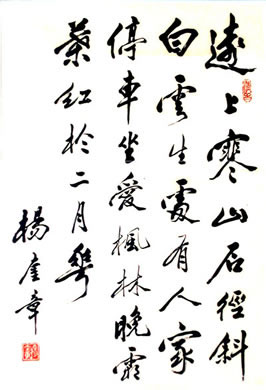 遠上寒山石徑斜
白雲生處有人家
停車坐愛楓林晚霜
葉紅於二月華
楊奎章